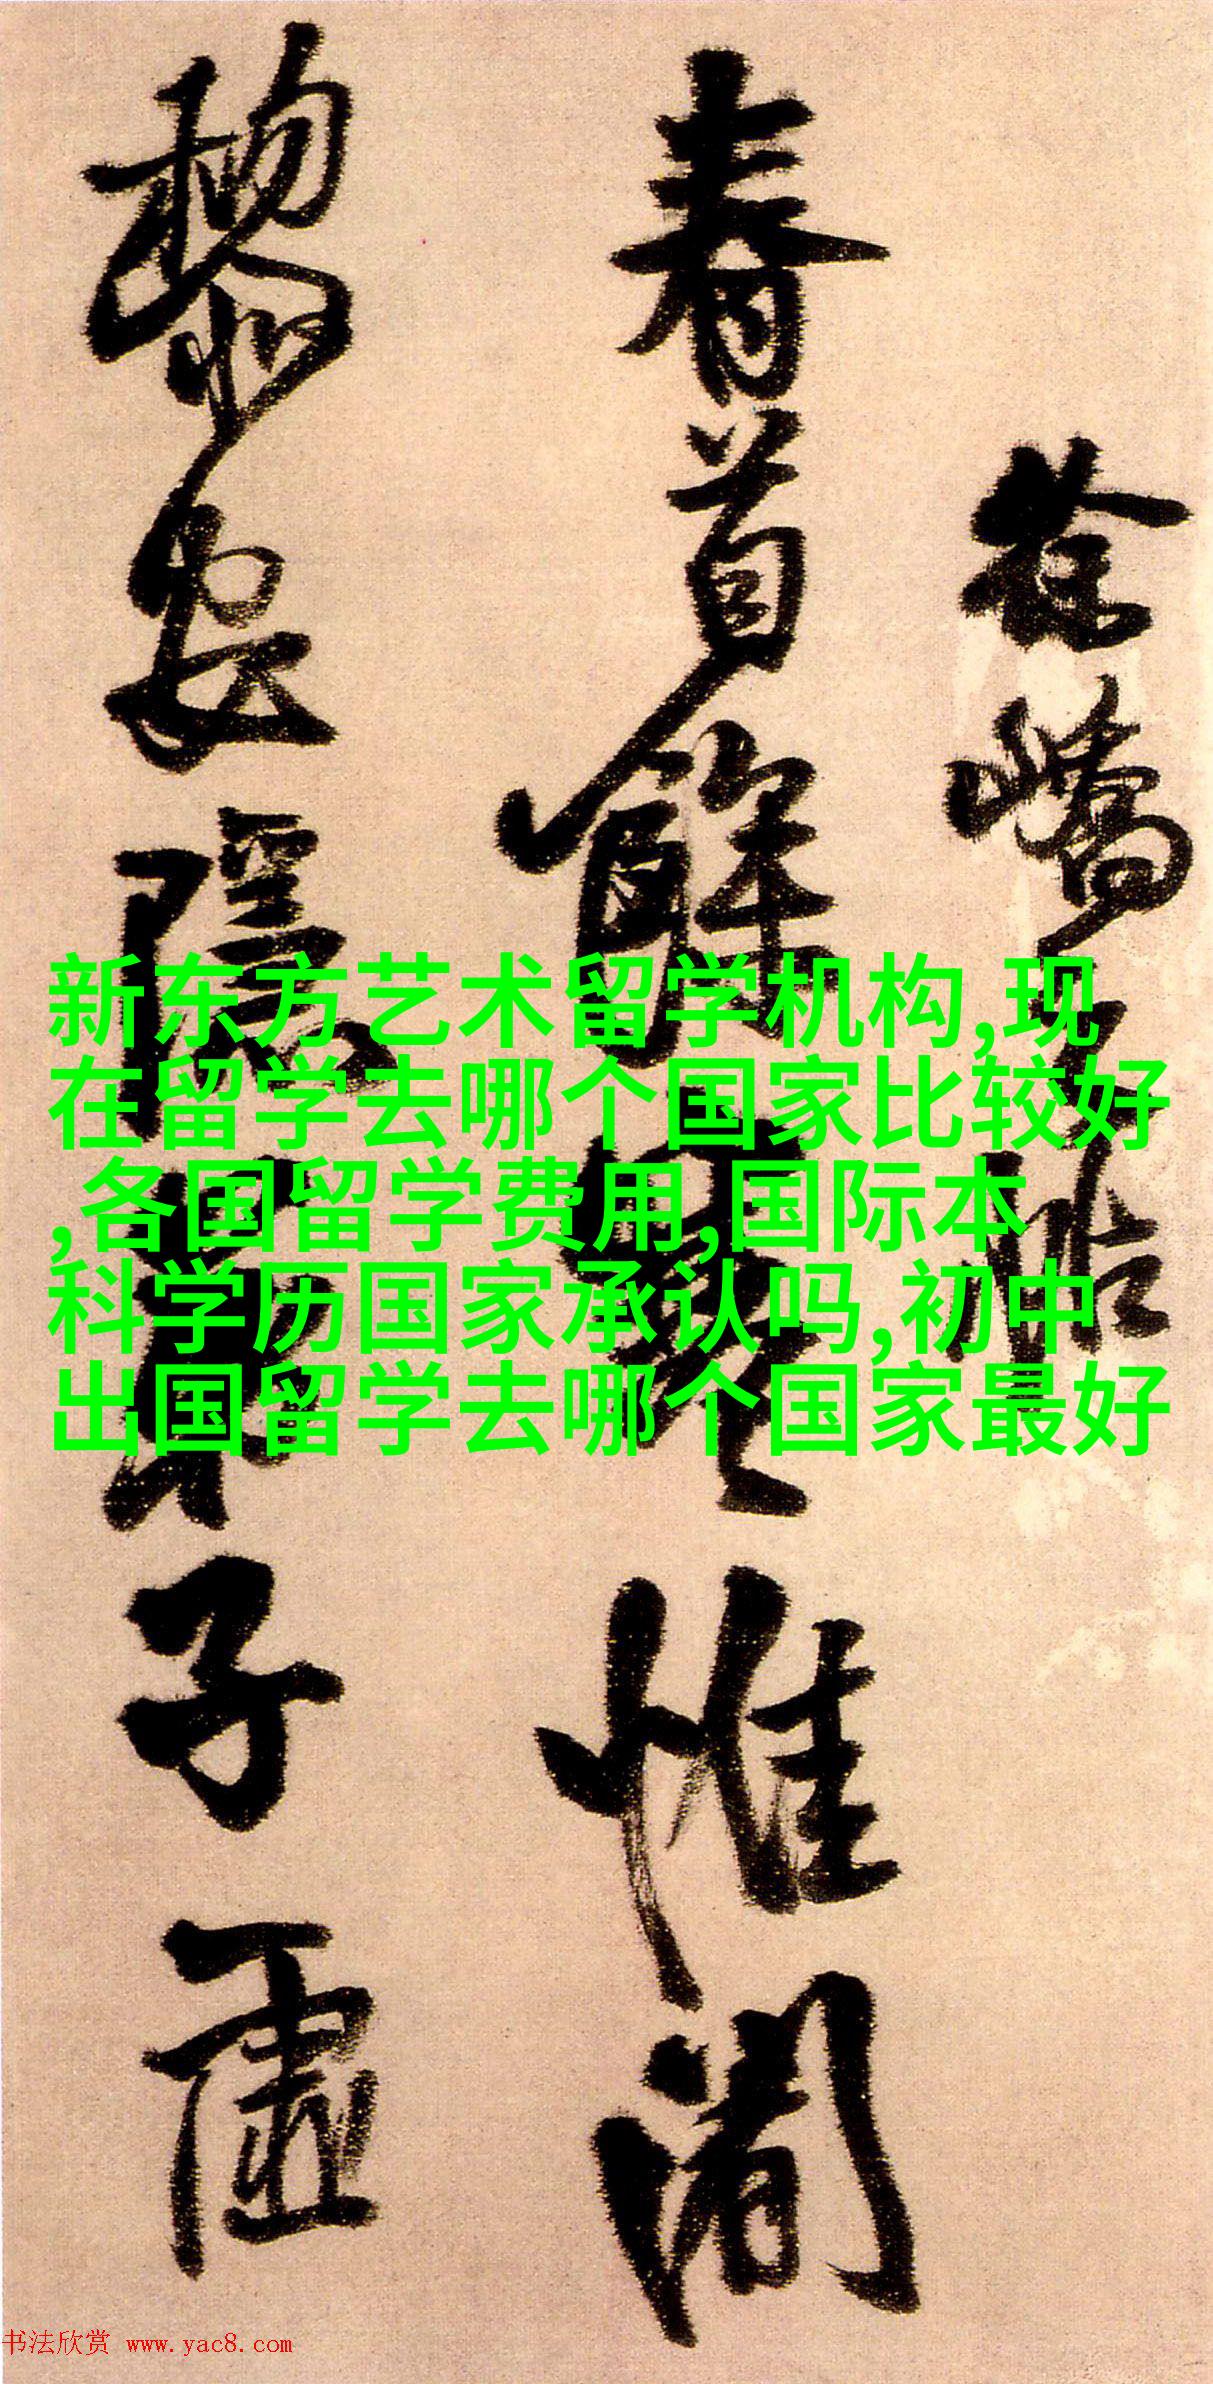 徐嶠之帖
春首餘寒惟闍
黎安隱弟子虛
新东方艺术留学机构,现
在留学去哪个国家比较好
,各国留学费用,国际本
科学历国家承认吗,初中
出国留学去哪个国家最好
书法欣赏 www.yac8.com